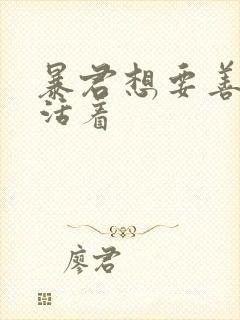 暴君想要善
活着
廖君